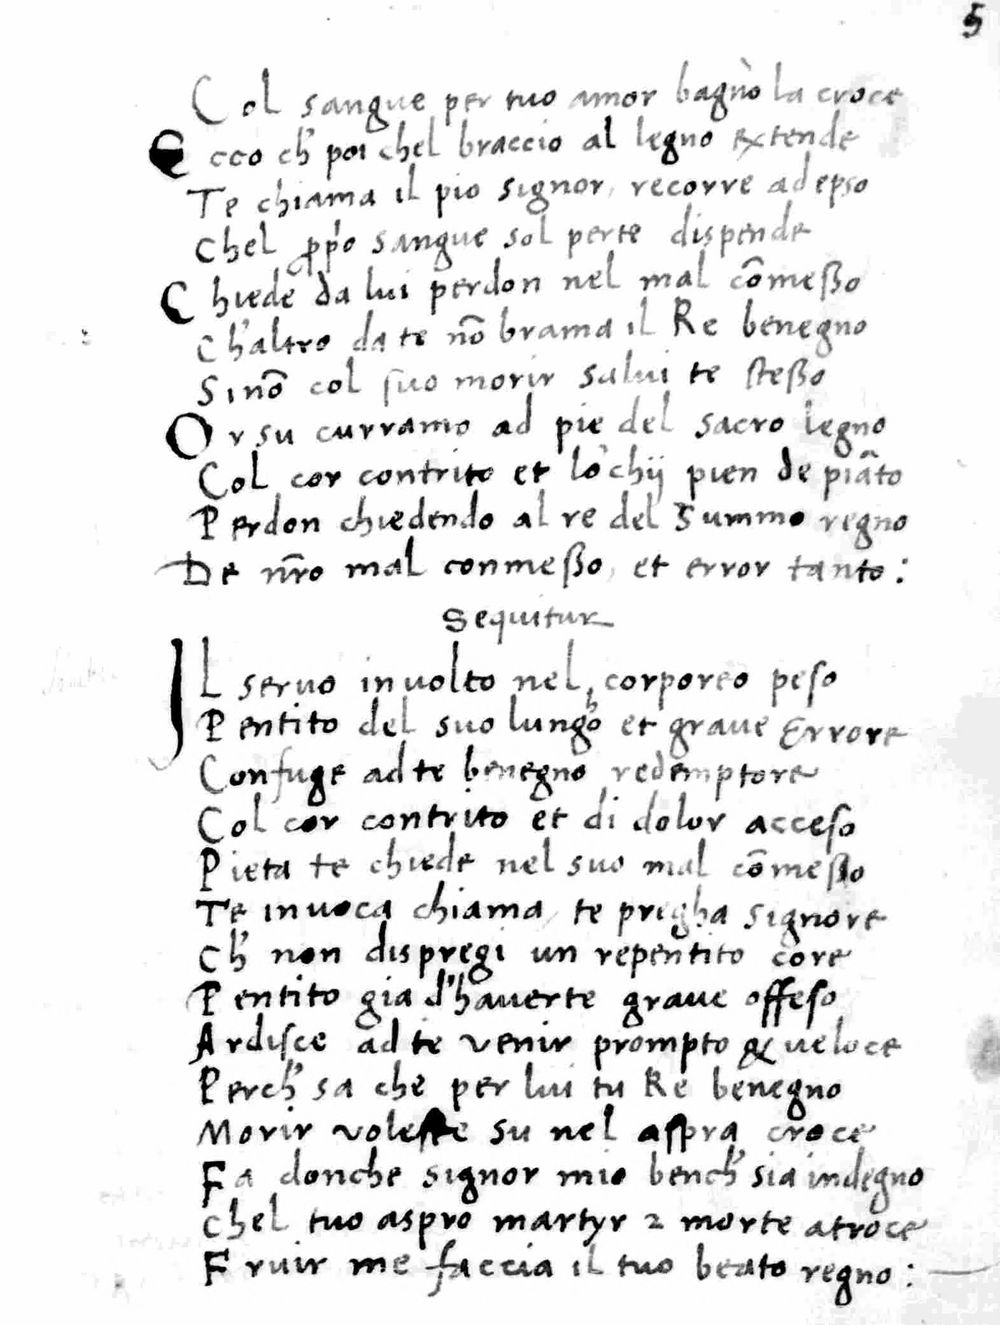 5
Col sangue per tuo amor bagnò la croce
Ecco ch' poi chel braccio al legno extende
Te chiama il pio signor, recorre ad epso
Chel pp'o sangue sol perte dispende
Chiede da lui perdon nel mal cōmeßo
Ch'altro da te nō brama il Re benegno
Sinō col suo morir salui te steßo
Or su curramo ad pie del sacro legno
Col cor contrito et lo chij pien de piāto
Perdon chiedendo al re del Summo regno
De nr̄o mal conmeßo, et error tanto :
Sequitur
IL seruo inuolto nel corporeo peso
Pentito del suo lungo et graue Errore
Confuge ad te benegno redemptore
Col cor contrito et di dolor acceso
Pieta te chiede nel suo mal cōmeßo
Te inuoca chiama, te prigha signore
ch' non dispregi un repentito core
Pentito gia d'hauerte graue offeso
Ardisce ad te venir prompto & ueloce
Perch' sa che per lui tu Re benegno
Morir voleste su nel aspra croce
Fa donche signor mio bench' sia indegno
Chel tuo aspro martyr 2 morte atroce
Fruir me faccia il tuo beato regno :